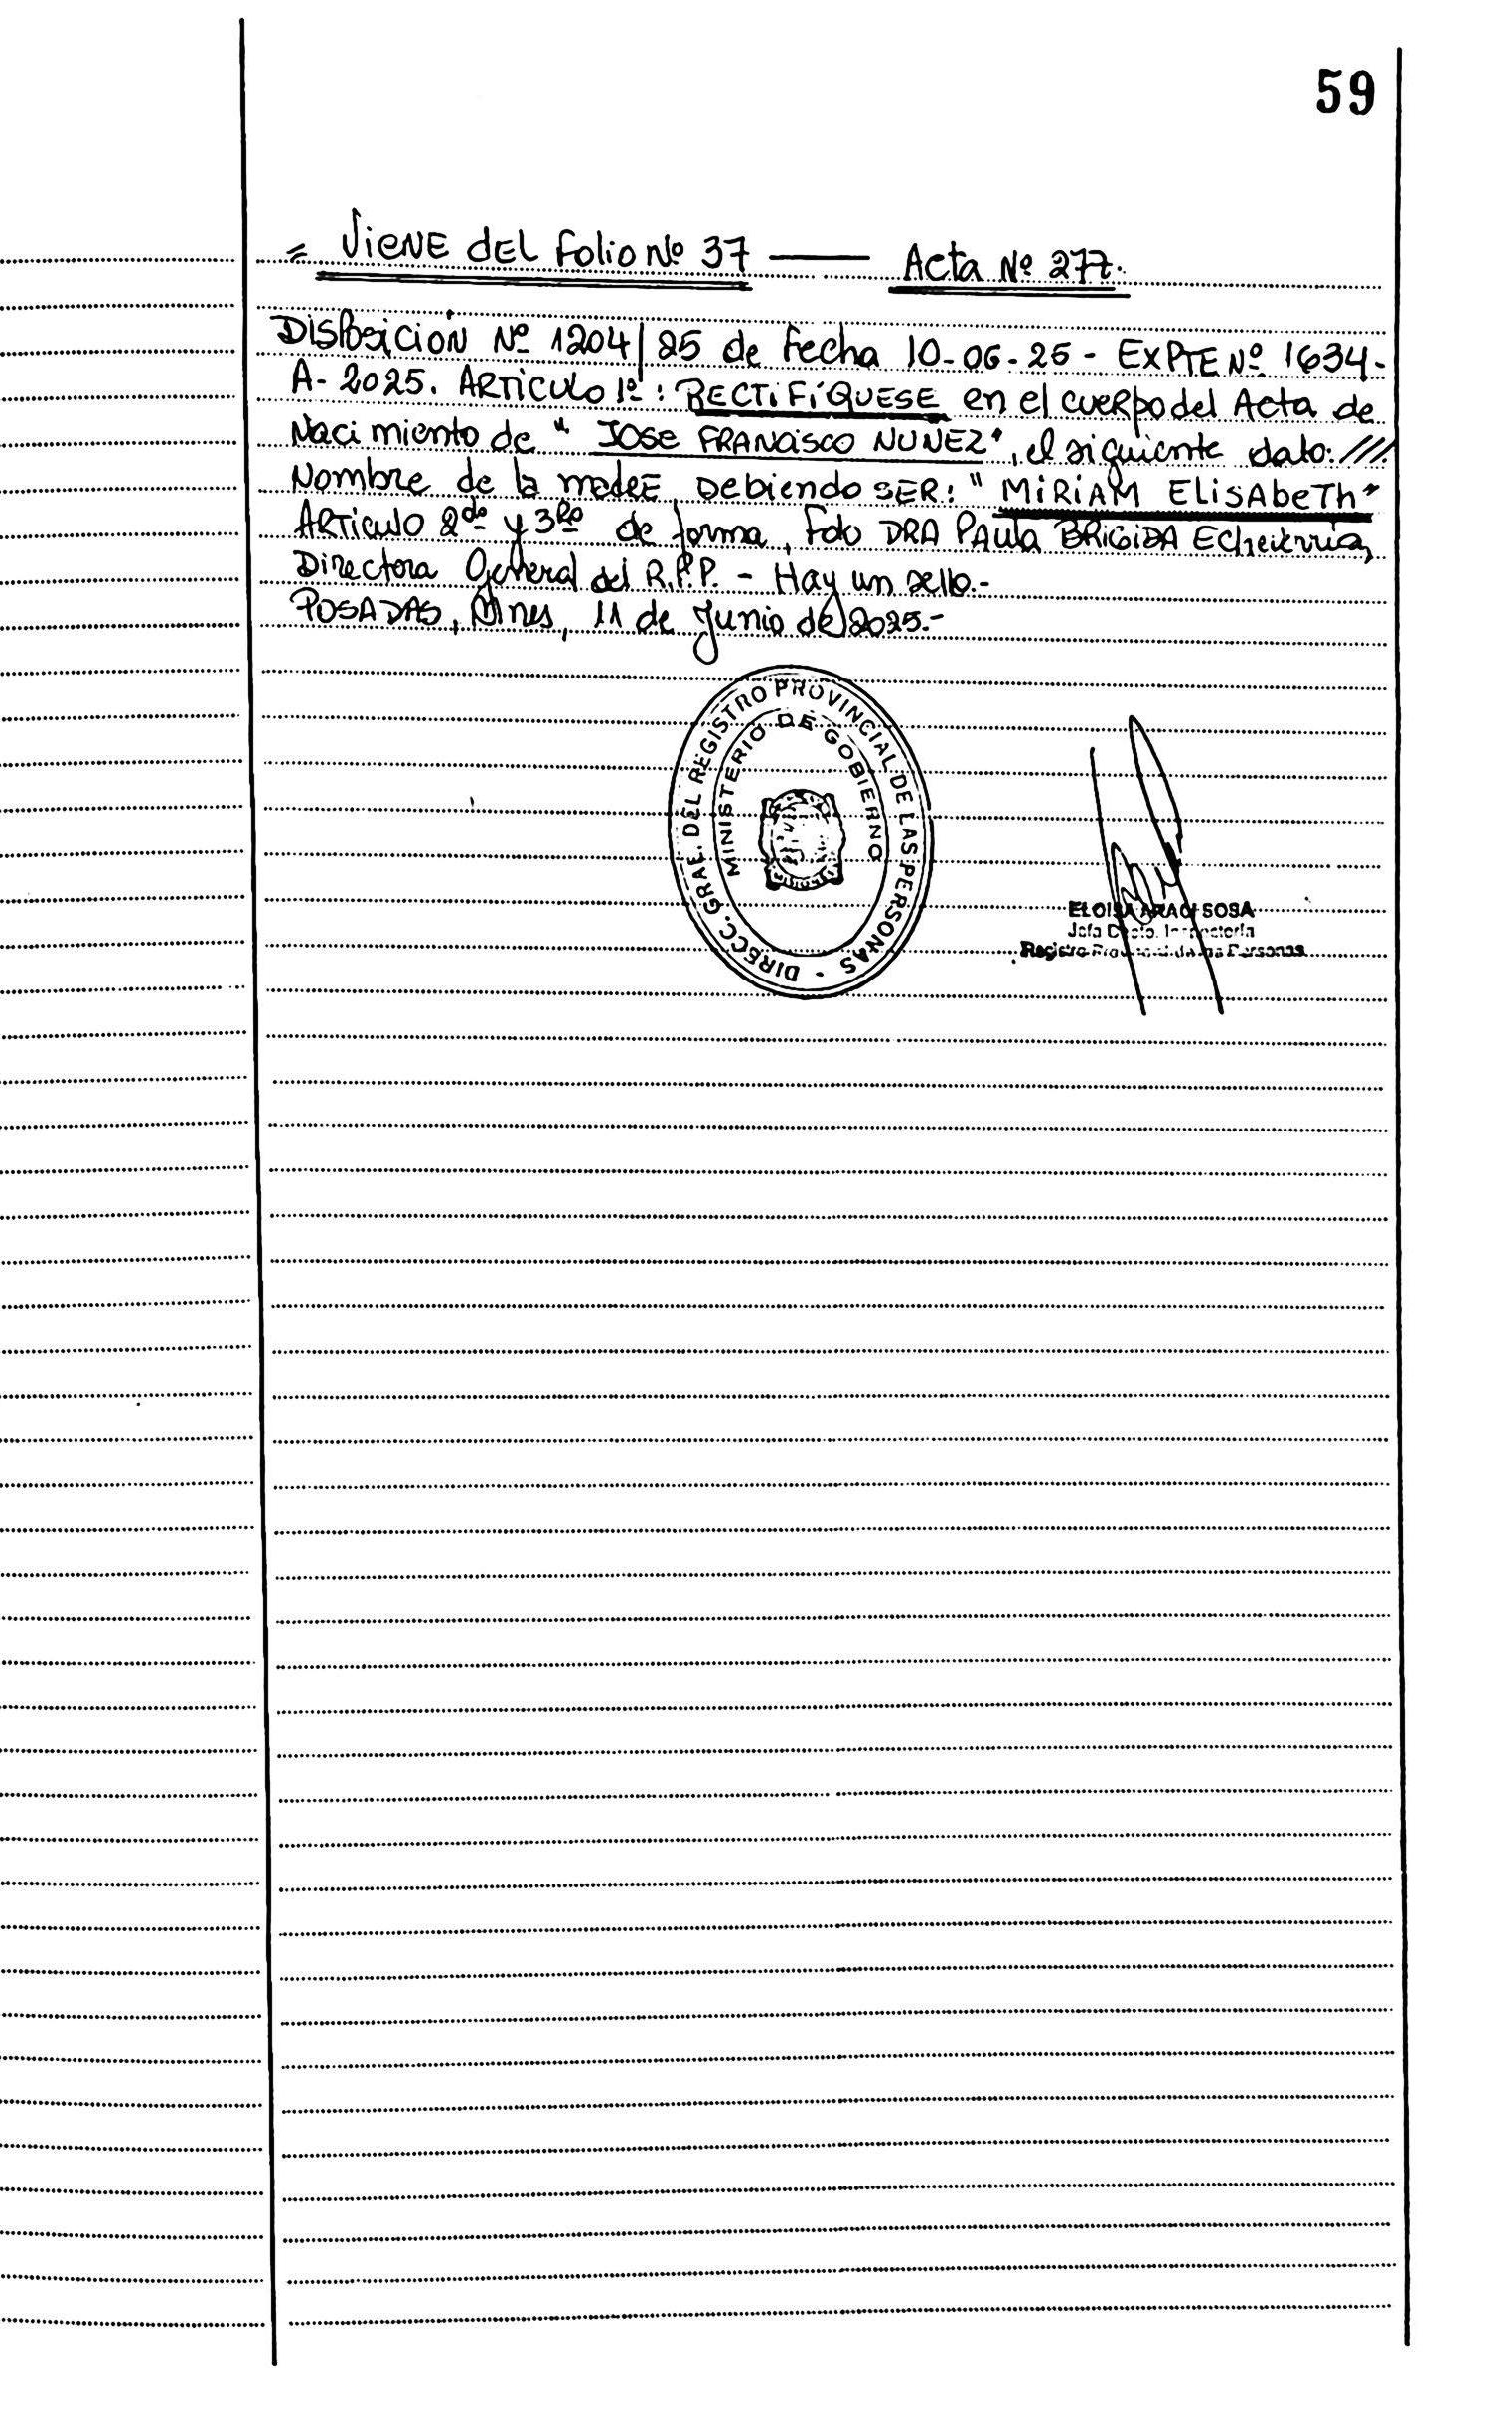 59
= Viene del folio Nº 37 —— Acta Nº 277.
Disposición Nº 1204/25 de fecha 10-06-25 - EXPTE Nº 1634-
A-2025. ARTICULO 1º: RECTIFÍQUESE en el cuerpo del Acta de
Nacimiento de "JOSE FRANCISCO NUNEZ", el siguiente dato: ///.
Nombre de la madre, Debiendo SER: "MIRIAM ElisAbeTh"
ARTICULO 2do y 3ro de forma, Fdo DRA PAula BRIGIDA Echeverria,
Directora General del R.P.P. - Hay un sello.-
POSADAS, Mnes, 11 de Junio de 2025.-
DIRECC. GRAL. DEL REGISTRO PROVINCIAL DE LAS PERSONAS -
MINISTERIO DE GOBIERNO
ELOISA ARACI SOSA
Jefa Dpto. Inspectoría
Registro Provincial de las Personas